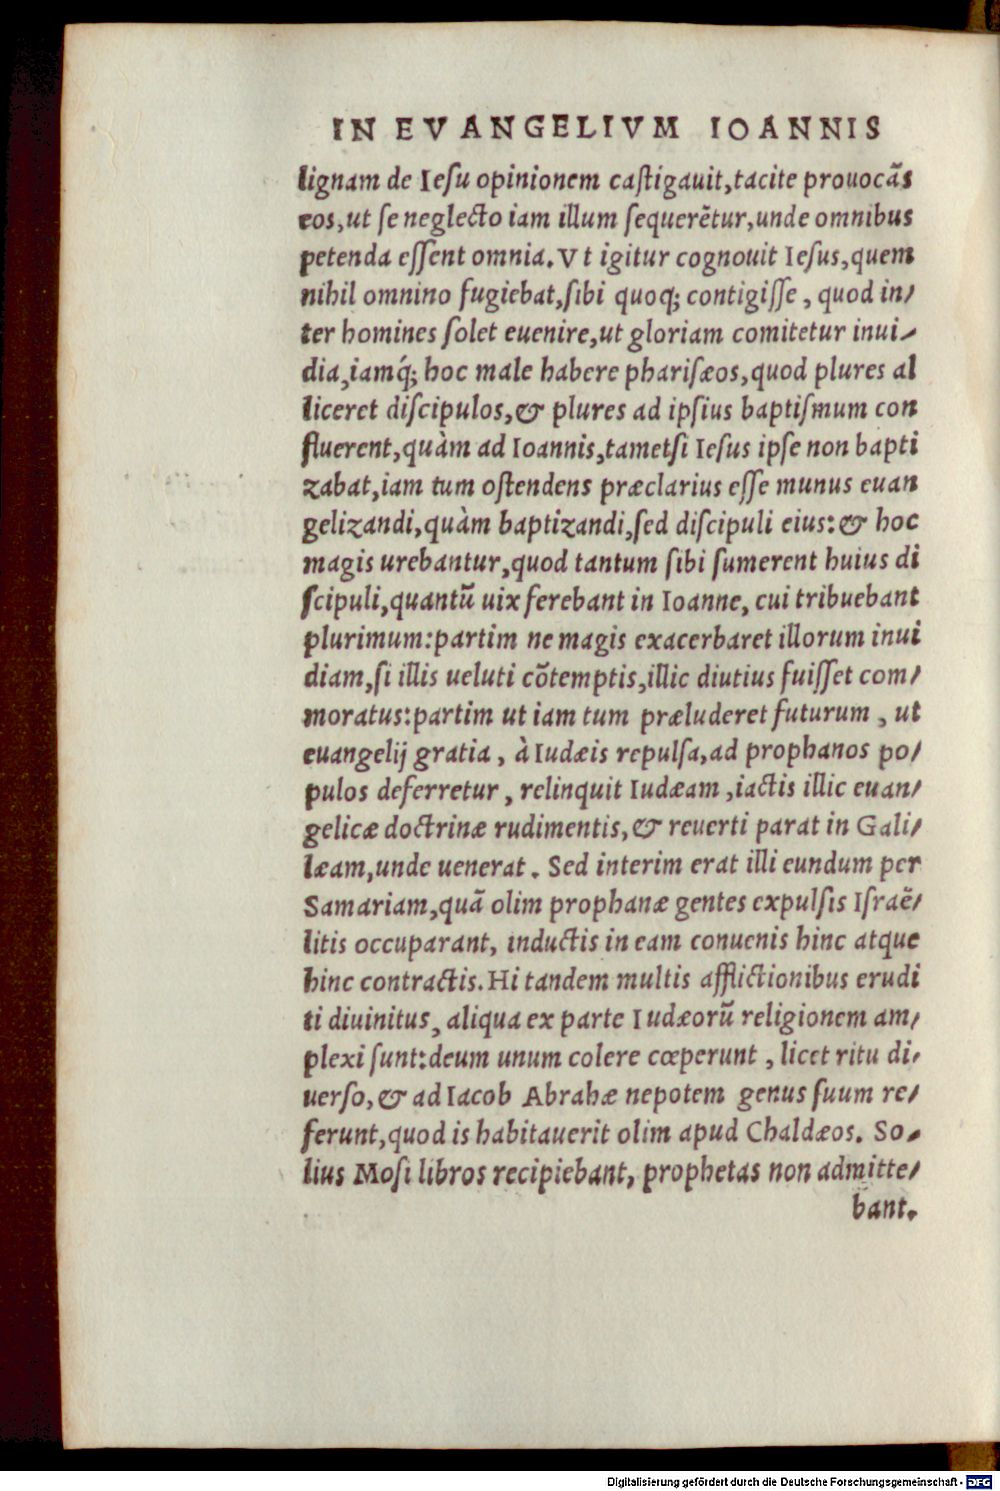 IN EVANGELIVM IOANNIS
lignam de Iesu opinionem caſtigauit,tacite prouocãs
eos,ut ſe neglecto iam illum ſequerẽtur,unde omnibus
petenda eſſent omnia. Vt igitur cognouit Ieſus,quem
nihil omnino fugiebat,ſibi quoq; contigiſſe , quod in/
ter homines ſolet euenire,ut gloriam comitetur inui/
dia,iamq́; hoc male habere phariſæos,quod plures al
liceret diſcipulos,& plures ad ipſius baptiſmum con
fluerent,quàm ad Ioannis,tametſi Ieſus ipſe non bapti
zabat,iam tum oſtendens præclarius eſſe munus euan
gelizandi,quàm baptizandi,ſed diſcipuli eius:& hoc
magis urebantur,quod tantum ſibi ſumerent huius di
ſcipuli,quantũ uix ferebant in Ioanne, cui tribuebant
plurimum:partim ne magis exacerbaret illorum inui
diam,ſi illis ueluti cõtemptis,illic diutius fuiſſet com/
moratus:partim ut iam tum præluderet futurum , ut
euangelij gratia , à Iudæis repulſa,ad prophanos po/
pulos deferretur , relinquit Iudæam ,iactis illic euan/
gelicæ doctrinæ rudimentis,& reuerti parat in Gali/
læam,unde uenerat . Sed interim erat illi eundum per
Samariam,quã olim prophanæ gentes expulſis Iſraë/
litis occuparant, inductis in eam conuenis hinc atque
hinc contractis. Hi tandem multis afflictionibus erudi
ti diuinitus, aliqua ex parte Iudæorũ religionem am/
plexi ſunt:deum unum colere cœperunt , licet ritu di/
uerſo,& ad Iacob Abrahæ nepotem genus ſuum re/
ferunt,quod is habitauerit olim apud Chaldæos. So/
lius Moſi libros recipiebant, prophetas non admitte/
bant.
Digitalisierung gefördert durch die Deutsche Forschungsgemeinschaft - DFG